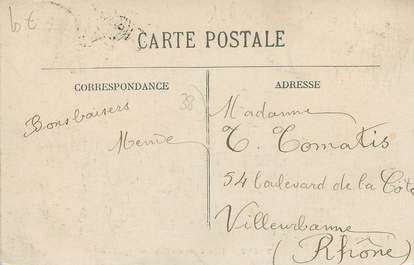 6€
CARTE POSTALE
CORRESPONDANCE
ADRESSE
38
Bons baisers
Madame
T. Tomatis
54 boulevard de la Côte
Villeurbanne
(Rhône)